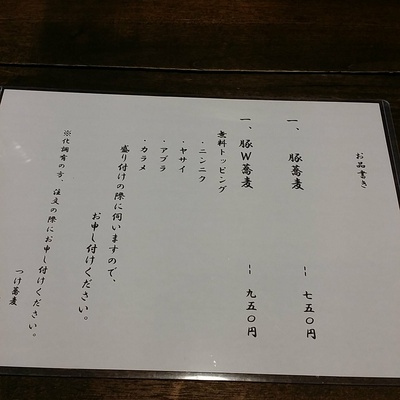 お品書き
一、 豚蕎麦 ―― 七五〇円
一、 豚W蕎麦 ―― 九五〇円
無料トッピング
・ニンニク
・ヤサイ
・アブラ
・カラメ
盛り付けの際に伺いますので、
お申し付けください。
※代調育の方、注文の際にお申し付けください。
つけ蕎麦